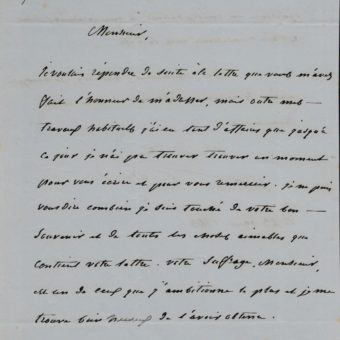 Monsieur,
Je voulais répondre de suite à la lettre que vous m'avez
fait l'honneur de m'adresser, mais outre mes
travaux habituels j'ai eu tant d'affaires que jusqu'à
ce jour je n'ai pu trouver trouver un moment
pour vous écrire et pour vous remercier. je ne puis
vous dire combien je suis touché de votre bon
souvenir et de toutes les choses aimables que
contient votre lettre. votre suffrage, Monsieur,
est un de ceux que j'ambitionne le plus et je me
trouve bien heureux de l'avoir obtenu.